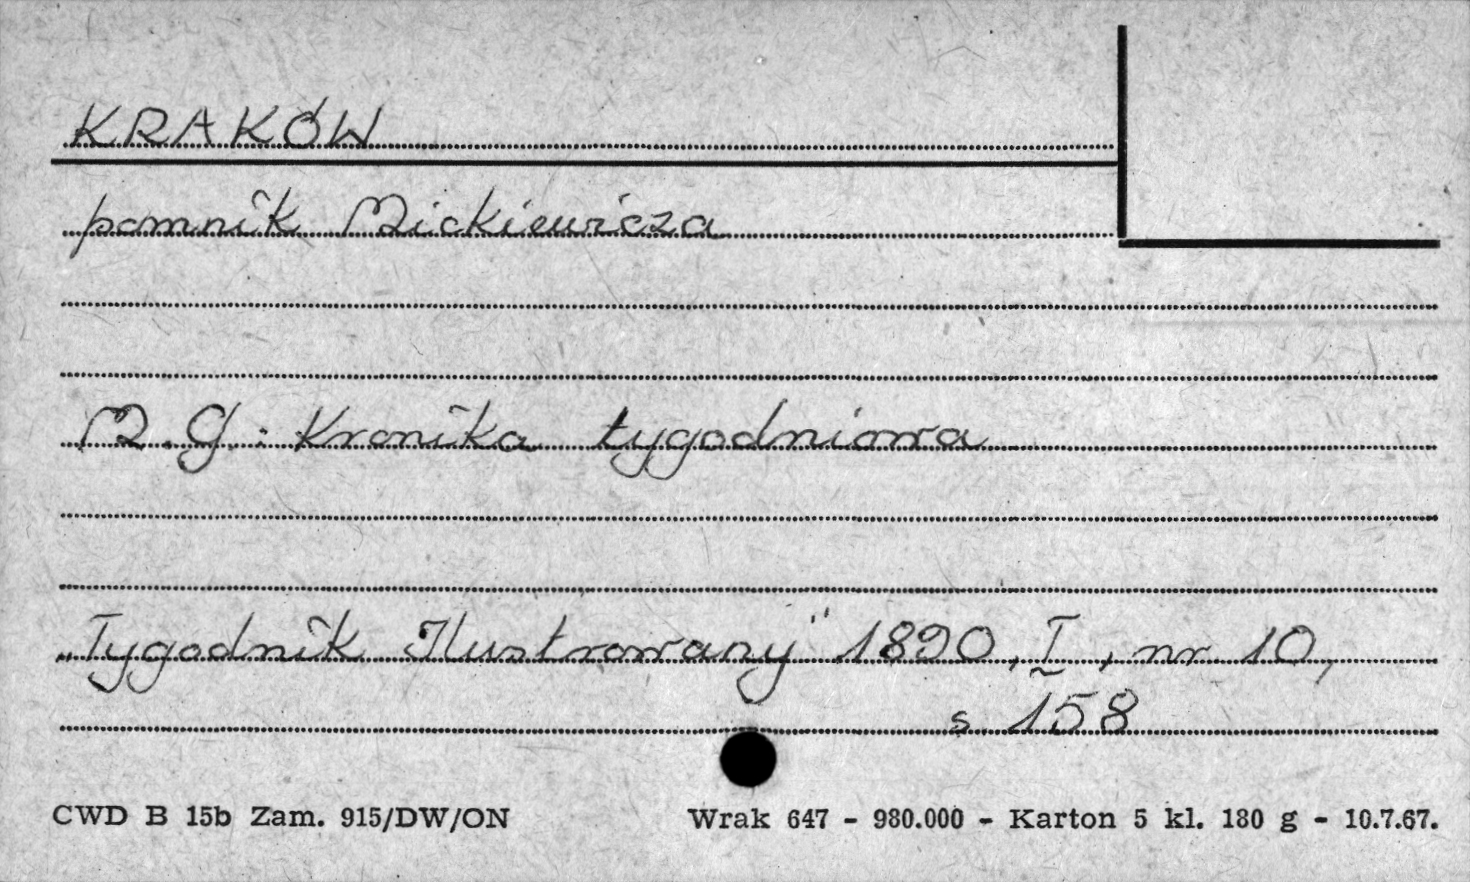 KRAKÓW
pomnik Mickiewicza
M.G.: Kronika tygodniowa
„Tygodnik Ilustrowany" 1890, I, nr 10,
s. 158
CWD B 15b Zam. 915/DW/ON Wrak 647 - 980.000 - Karton 5 kl. 180 g - 10.7.67.